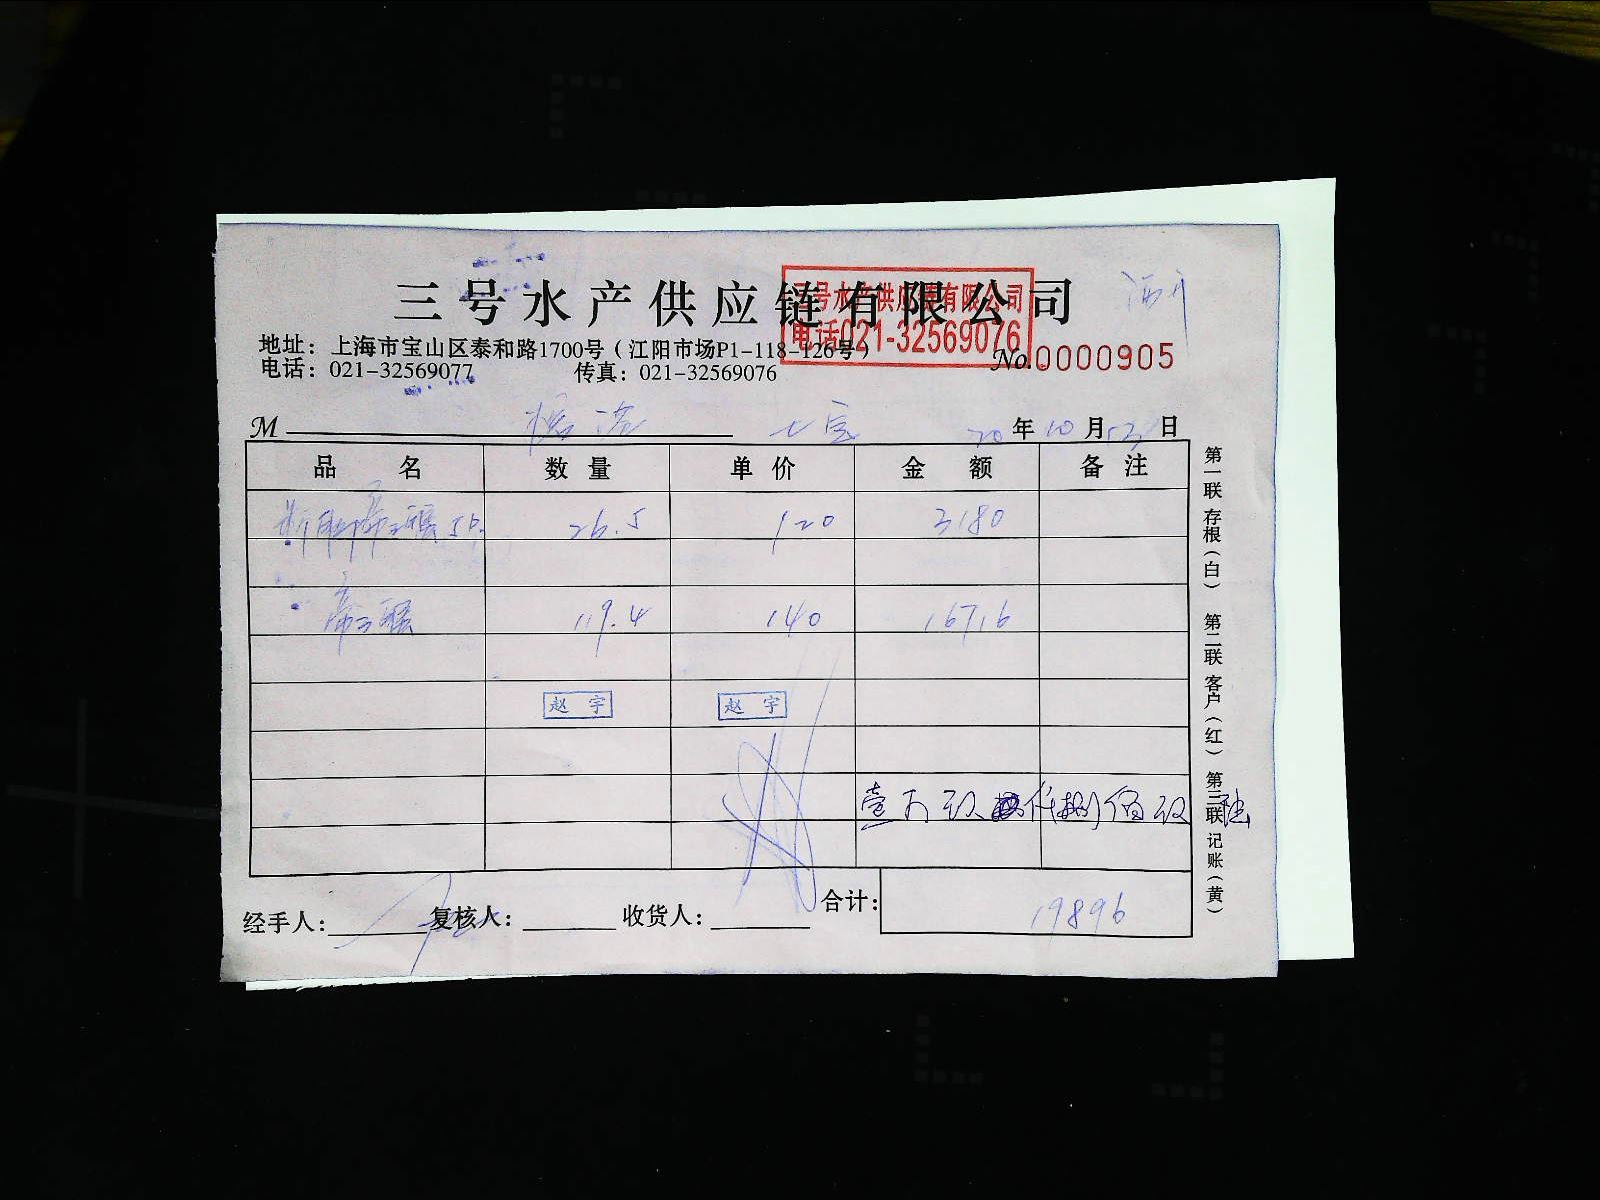 三号水产供应链有限公司
三号水产供应链有限公司
电话021-32569076
地址：上海市宝山区泰和路1700号（江阳市场P1-118-126号）
电话：021-32569077 传真：021-32569076
No.0000905
M 七宝 20年10月 日
品名 数量 单价 金额 备注
26.5 120 3180
帝王蟹 119.4 140 16716
赵宇 赵宇
壹万玖仟捌佰玖 陆
合计： 19896
经手人： 复核人： 收货人：
第一联 存根（白） 第二联 客户（红） 第三联 记账（黄）